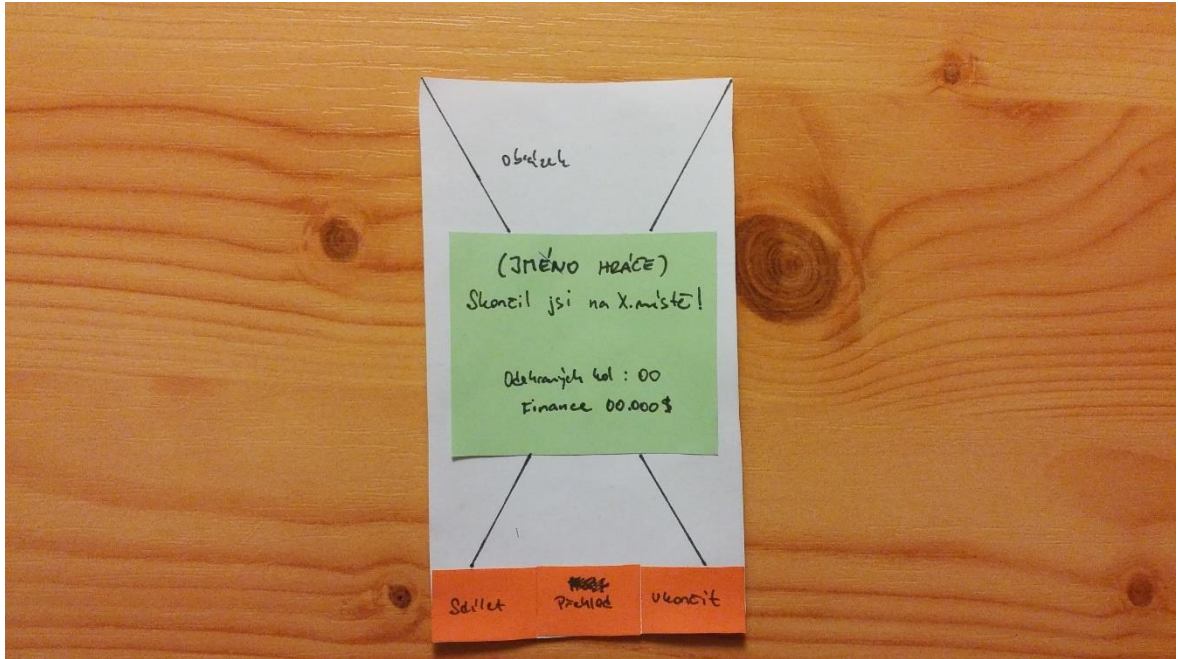 obrázek
(JMÉNO HRÁČE)
Skončil jsi na X. místě!
Odehraných kol : 00
Finance 00.000$
Sdílet
Přehled
Ukončit